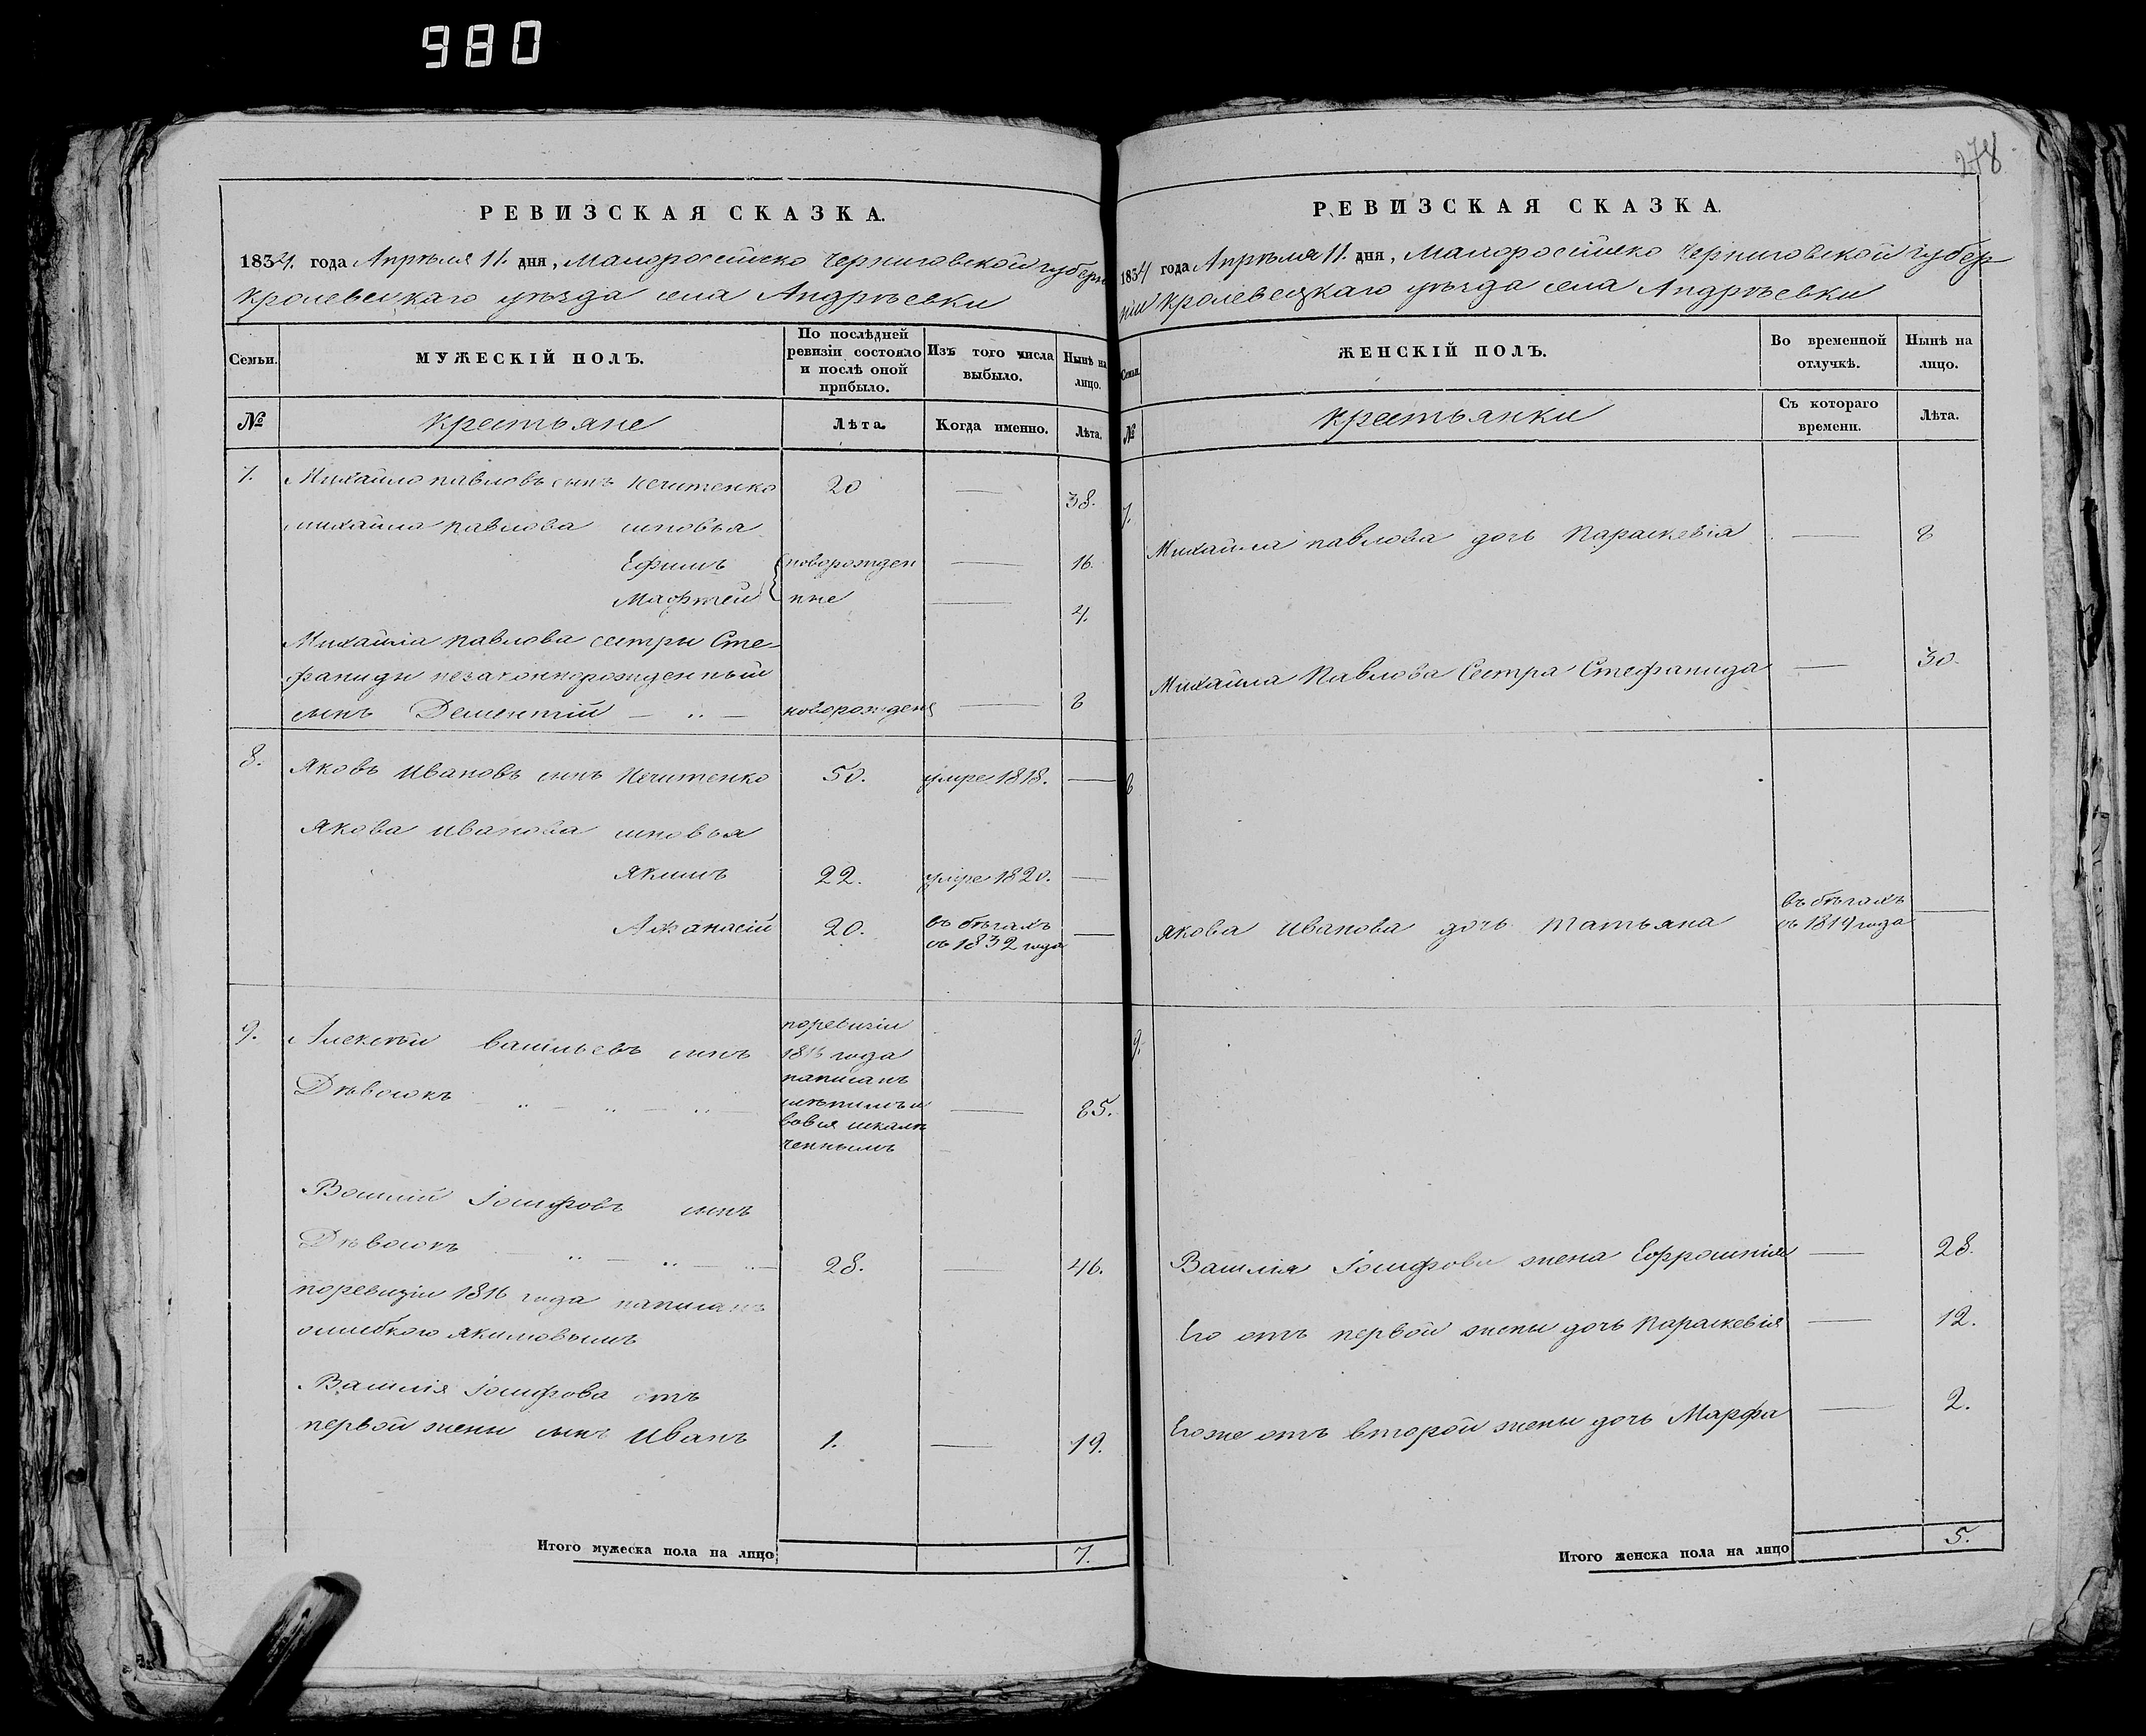 980
278
РЕВИЗСКАЯ СКАЗКА.
1834. года Апрѣля 11. дня, Малоросійско Черниговской губерн
Кролевецкаго уѣзда села Андрѣевки
Семьи.
МУЖЕСКІЙ ПОЛЪ.
По послѣдней ревизіи состояло и послѣ оной прибыло.
Изъ того числа выбыло.
Нынѣ на лицо.
№
Крестьяне
Лѣта.
Когда именно.
Лѣта.
7. Михайло Павловъ сынъ Нечитенко 20 — 38.
Михайла Павлова сыновья
Ефимъ новорожден — 16.
Мафтей ные — 4.
Михайла Павлова сестры Сте-
фаниды незаконнорожденный
сынъ Дементій — „ — новорожден — 8
8. Яковъ Ивановъ сынъ Нечитенко 50. умре 1818. —
Якова Иванова сыновья
Якимъ 22. умре 1820. —
Афанасій 20. въ бѣгахъ —
съ 1832 года
9. Алексѣй Васильевъ сынъ
Дѣвосюкъ „ — „ — „ — 85.
поревизіи
1816 года
написанъ
слѣпимъ и
вовся искалѣ
ченнымъ
Василій Іосифовъ сынъ
Дѣвосюкъ — „ — „ — „ — 28. — 46.
поревизіи 1816 года написанъ
ошибкою Якимовымъ
Василія Іосифова отъ
первой жены сынъ Иванъ 1. — 19.
Итого мужеска пола на лицо 7.
РЕВИЗСКАЯ СКАЗКА.
1834 года Апрѣля 11. дня, Малоросійско Черниговской губер-
ніи Кролевецкаго уѣзда села Андрѣевки
Семьи.
ЖЕНСКІЙ ПОЛЪ.
Во временной отлучкѣ.
Нынѣ на лицо.
№
Крестьянки
Съ котораго времени.
Лѣта.
7.
Михайла Павлова дочь Параскевія — 8
Михайла Павлова Сестра Стефанида — 30.
8
Якова Иванова дочь Татьяна въ бѣгахъ —
съ 1819 года
9.
Василія Іосифова жена Ефросинія — 28.
Его отъ первой жены дочь Параскевія — 12.
Егоже отъ второй жены дочь Марфа — 2.
Итого женска пола на лицо 5.